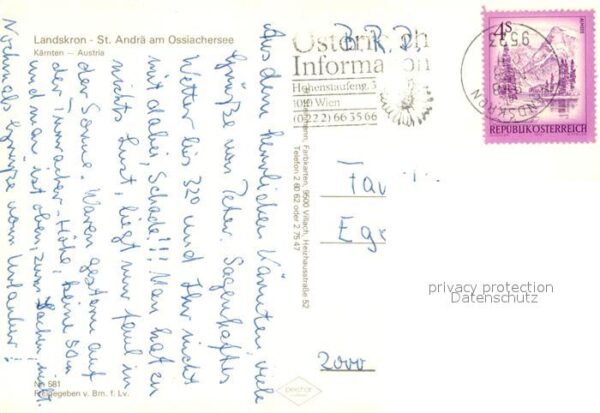 Landskron - St. Andrä am Ossiachersee
Kärnten - Austria
Aus dem herrlichen Kärnten viele
Grüße von Peter. Sagenhaftes
Wetter bis 32° und Ihr nicht
mit dabei, Schade!!! Man hat zu
nichts Lust, liegt nur faul in
der Sonne. Waren gestern auf
der Turracher-Höhe, keine
und man ist oben, zum Lachen, nicht.
Nochmals Grüße vom Urlauber!
Nr. 581
Freigegeben v. Bm. f. Lv.
Farbkarten, 9500 Villach, Heizhausstraße 52
Telefon 2 60 62 oder 2 75 47
Österreich
Information
Hohenstaufeng. 3
1010 Wien
(0 22 2) 66 35 66
B.R.D.
4S
ALMSEE
REPUBLIK ÖSTERREICH
9523
LANDSKRON
2000
privacy protection
Datenschutz